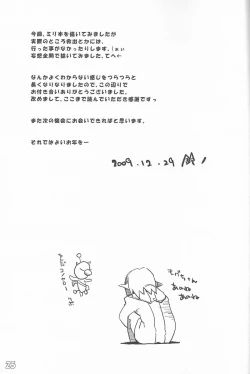 今回、エリ本を描いてみましたが
実際のところ救出とかには、
行った事がなかったりします。(ぉぃ
妄想全開で描いてみました、てへ←
なんかよくわからない感じをつらつらと
長くなりなりましたので、この辺りで
お付き合いありがとうございました。
改めまして、ここまで読んでいただき感謝ですっ
また次の機会にお会いできればと思います。
それではよいお年を～
2009.12.29
モグちゃん
あのねあのね
25